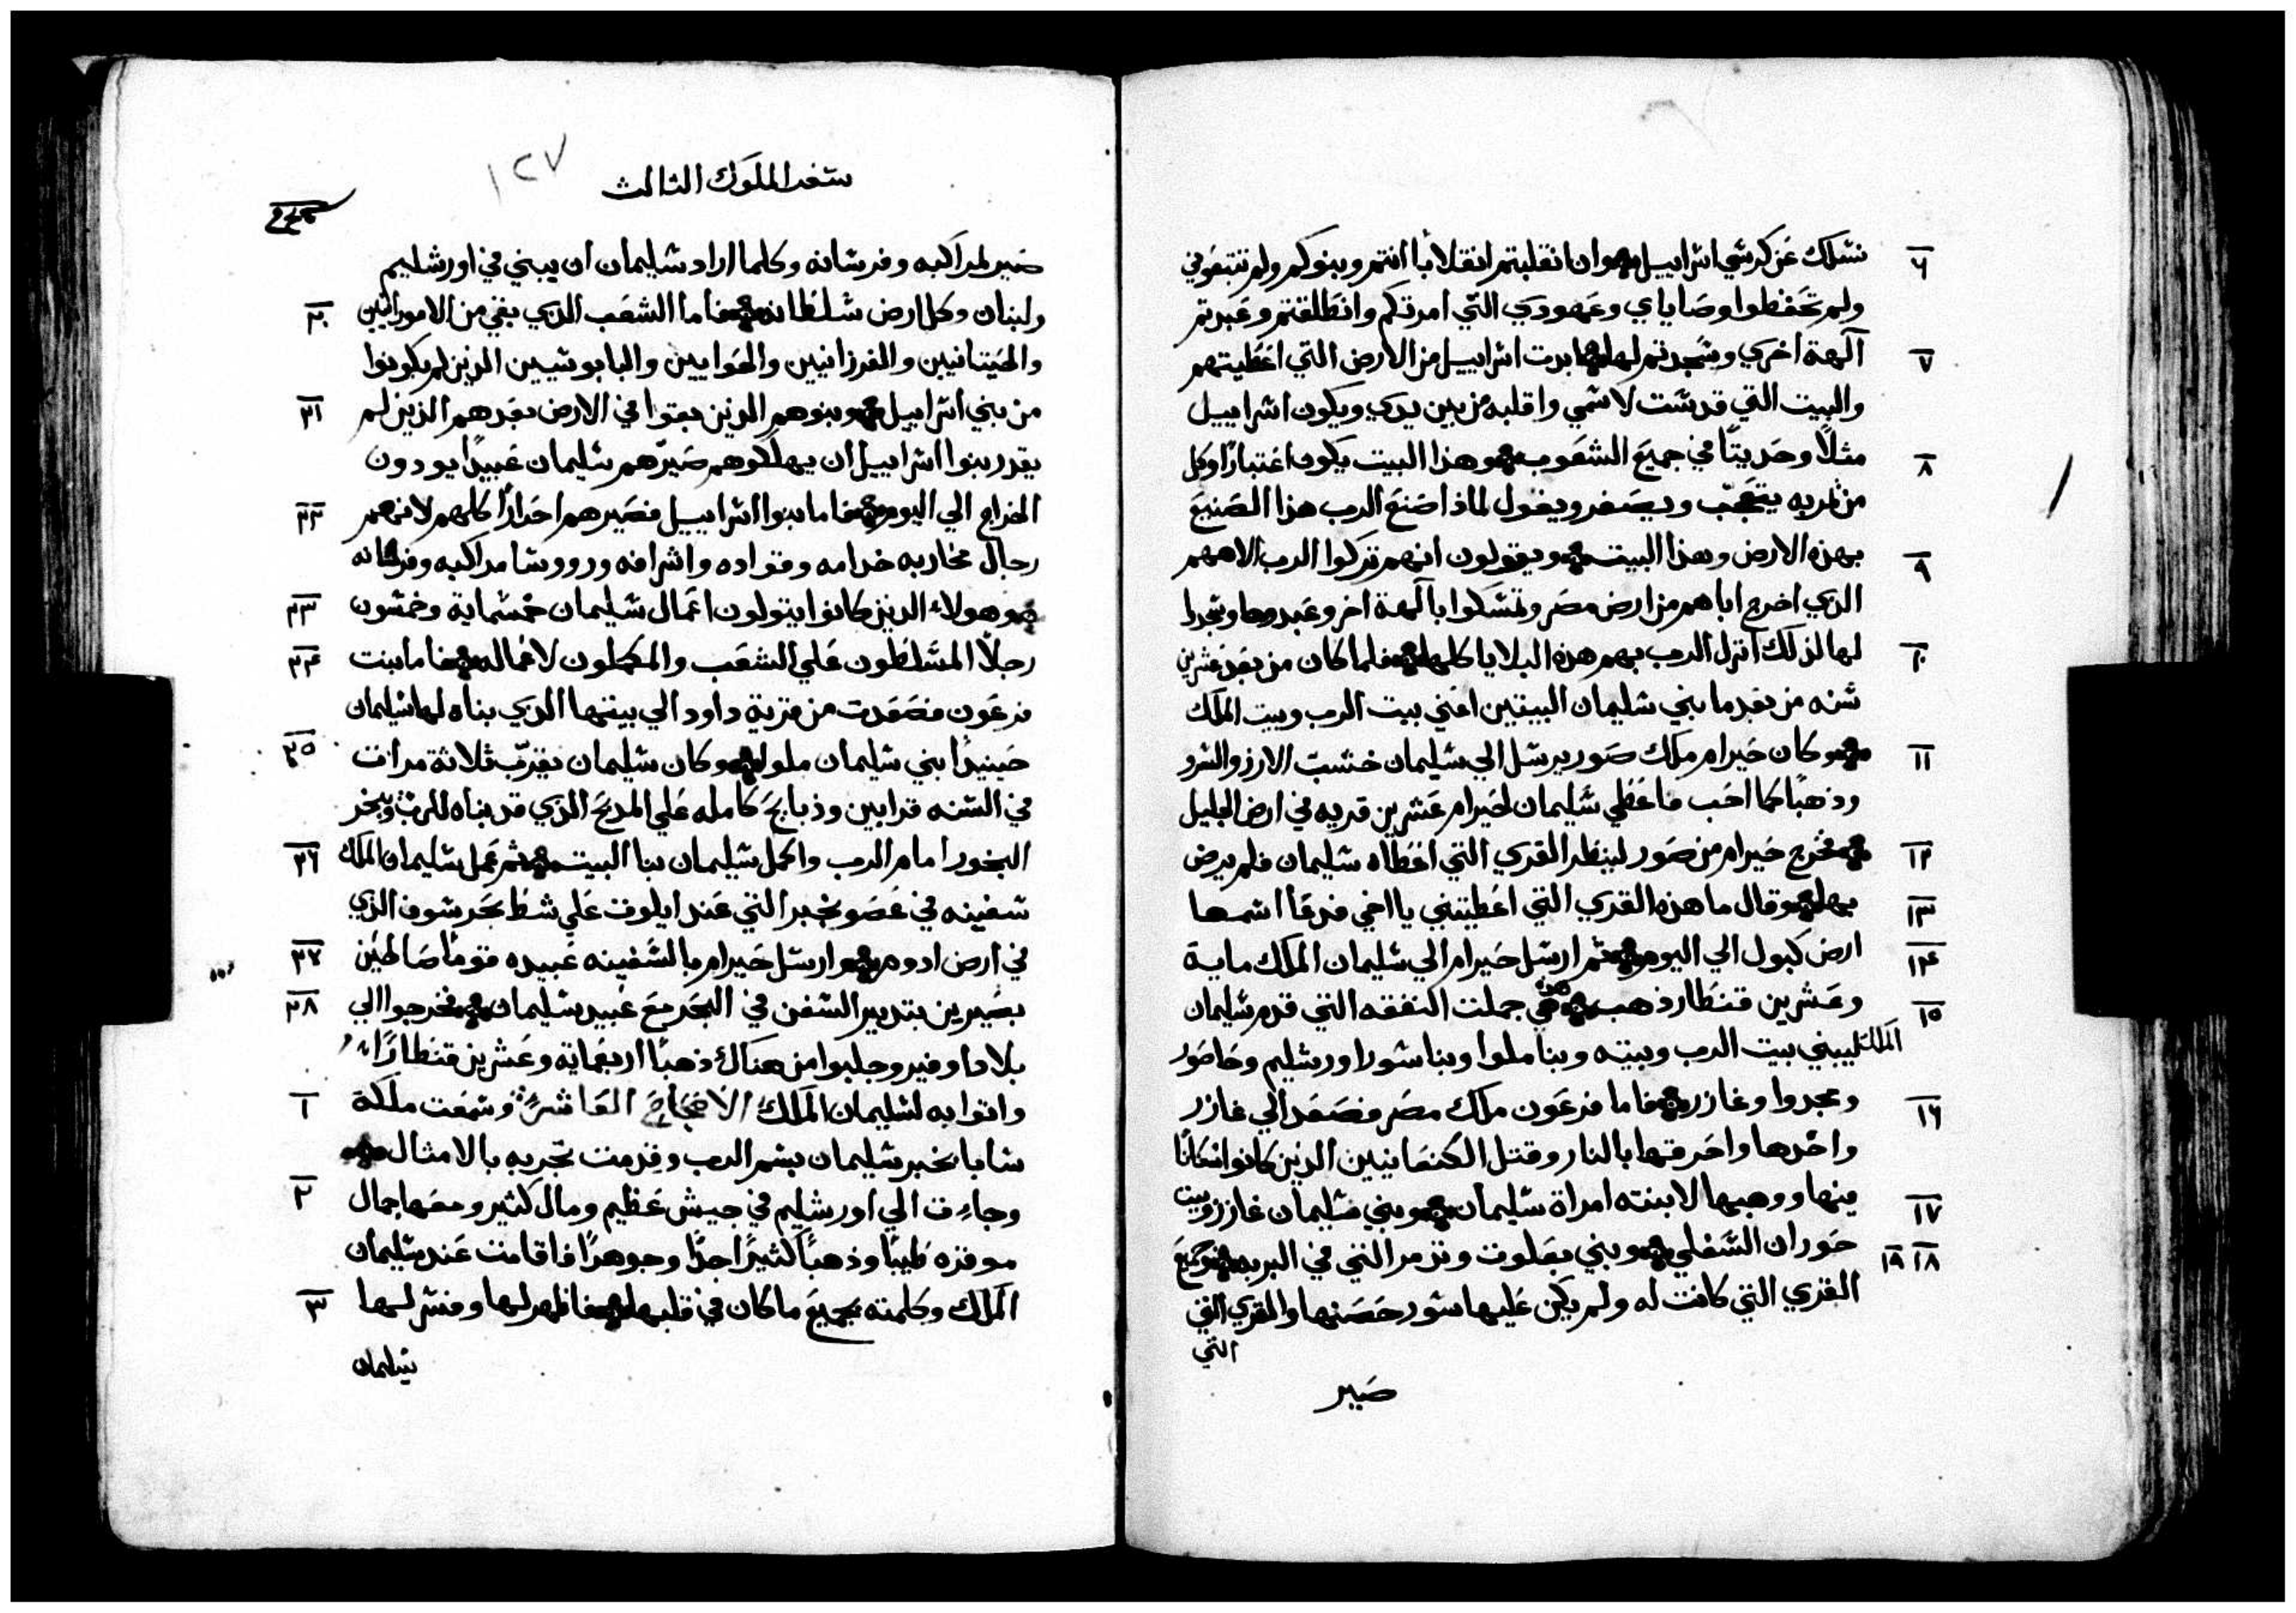 ٦ نسلك عن كرسي اسراييل وان انقلبتم انقلابا انتم وبنوكم ولم تتبعوني
ولم تحفظوا وصاياي وعهودي التي امرتكم وانطلقتم وعبدتم
٧ آلهة اخري وسجدتم لها ابدت اسراييل من الارض التي اعطيتهم
والبيت التي قدست لاسمي واقلبه من بين يدي ويكون اسراييل
٨ مثلاً وحديثاً في جميع الشعوب وهذا البيت يكون اعتباراً وكل
من مر به يتعجب ويصفر ويقول لماذا صنع الرب هذا الصنيع
٩ بهذه الارض وهذا البيت ويقولون انهم تركوا الرب الاههم
الذي اخرج اباهم من ارض مصر وتمسكوا بآلهة اخر وعبدوها وسجدوا
١٠ لها لذلك انزل الرب بهم هذه البلايا كلها فلما كان من بعد عشرين
سنه من بعد ما بني سليمان البيتين اعني بيت الرب وبيت الملك
١١ وكان حيرام ملك صور يرسل الي سليمان خشب الارز والسرو
وذهباً كما احب فاعطي سليمان لحيرام عشرين قريه في ارض الجليل
١٢ فخرج حيرام من صور لينظر القري التي اعطاه سليمان فلم يرض
١٣ بها وقال ما هذه القري التي اعطيتني يا اخي فدعا اسمها
١٤ ارض كبول الي اليوم ثم ارسل حيرام الي سليمان الملك ماية
١٥ وعشرين قنطار ذهب هذه هي جملت النفقه التي قدم سليمان
الملك ليبني بيت الرب وبيته وبنا ملوا وبنا سور اورشليم وحاصور
١٦ ومجدوا وغازر فاما فرعون ملك مصر فصعد الي غازر
واخدها واحرقها بالنار وقتل الكنعانيين الذين كانوا سكانا
١٧ فيها ووهبها لابنته امراة سليمان وبني سليمان غازر وبيت
١٨ ١٩ حوران السفلي وبني بعلوت وتزمر التي في البريه وجميع
القري التي كانت له ولم يكن عليها سور حصنها والقري التي
التي
صير
سفر الملوك الثالث
١٢٧
صير لمراكبه وفرسانه وكلما اراد سليمان ان يبني في اورشليم
٢٠ ولبنان وكل ارض سلطانه فاما الشعب الذي بقي من الامورانيين
والحيتانيين والفرزانيين والحوايين واليابوسيين الذين لم يكونوا
٢١ من بني اسراييل وبنوهم الذين بقوا في الارض بعدهم الذين لم
يقدر بنوا اسراييل ان يهلكوهم صيرهم سليمان عبيداً يودون
٢٢ الخراج الي اليوم فاما بنوا اسراييل فصيرهم احراراً كلهم لانهم
رجال محاربه خدامه وقواده واشرافه ورووسا مراكبه وفرسانه
٢٣ وهولاء الذين كانوا يتولون اعمال سليمان خمسماية وخمسون
٢٤ رجلاً المسلطون علي الشعب والمكملون لاعماله فاما بنت
فرعون فصعدت من قرية داود الي بيتها الذي بناه لها سليمان
٢٥ حينيداً بني سليمان ملوا وكان سليمان يقرب ثلاثة مرات
في السنه قرابين وذبايح كامله علي المدبح الذي قد بناه للرب ويبخر
٢٦ البخور امام الرب واكمل سليمان بنا البيت ثم عمل سليمان الملك
سفينه في عصو نجبر التي عند ايلوت علي شط بحر سوف الذي
٢٧ في ارض ادوم وارسل حيرام بالسفينه عبيده قوماً صالحين
٢٨ بصيرين بتدبير السفن في البحر مع عبيد سليمان فخرجوا الي
بلاد اوفير وجلبوا من هناك ذهباً اربعماية وعشرين قنطاراً
١ واتوا به لسليمان الملك الاصحاح العاشر وسمعت ملكة
سابا بخبر سليمان بسم الرب وقدمت تجربه بالامثال
٢ وجاءت الي اورشليم في جيش عظيم ومال كثير ومعها جمال
موقره طيباً وذهباً كثيراً جداً وجوهراً فاقامت عند سليمان
٣ الملك وكلمته بجميع ما كان في قلبها فاظهر لها وفسر لها
سليمان